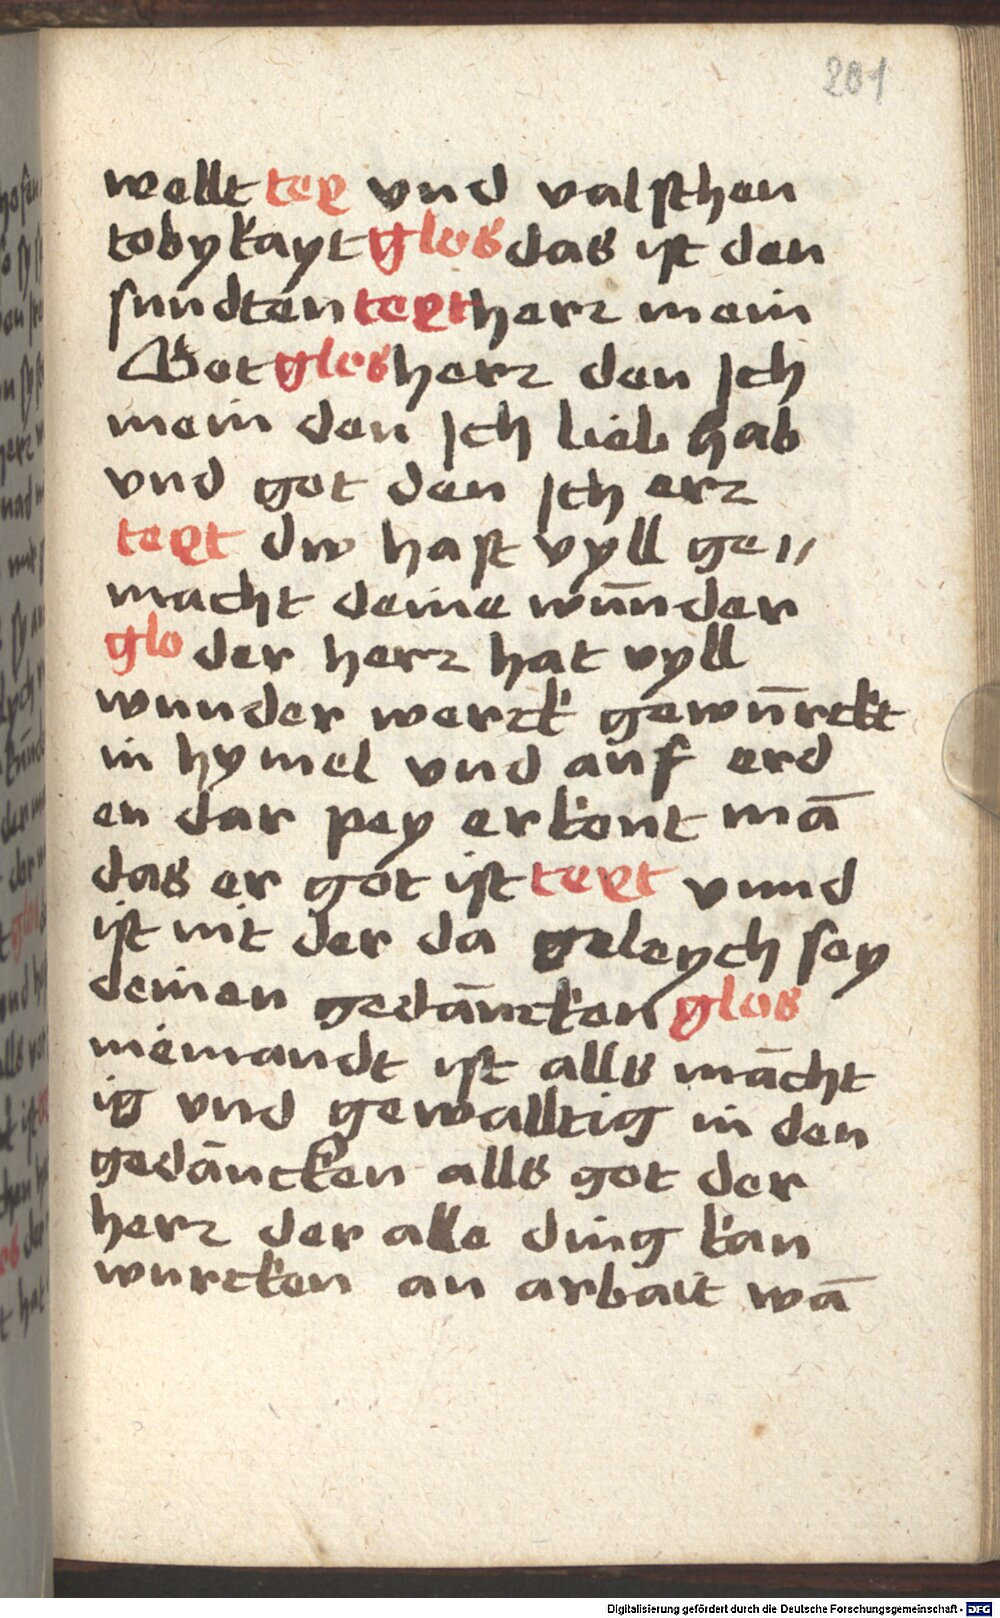 201
wellt tex vnd valschen
tobykayt glos das ist den
sundten text herr mein
Got glos herr den Ich
mein den Ich lieb hab
vnd got den Ich err
text dw hast vyll ge〃
macht deine wūnder
glo der herr hat vyll
wunder werck gewūrckt
in hymel vnd auf erd
en dar pey erkent mā
das er got ist text vnnd
ist nit der da geleych sey
deinen gedāncken glos
niemandt ist alls mācht
ig vnd gewalltig in den
gedāncken alls got der
herr der alle ding kan
wurcken an arbait wā
Digitalisierung gefördert durch die Deutsche Forschungsgemeinschaft - DFG